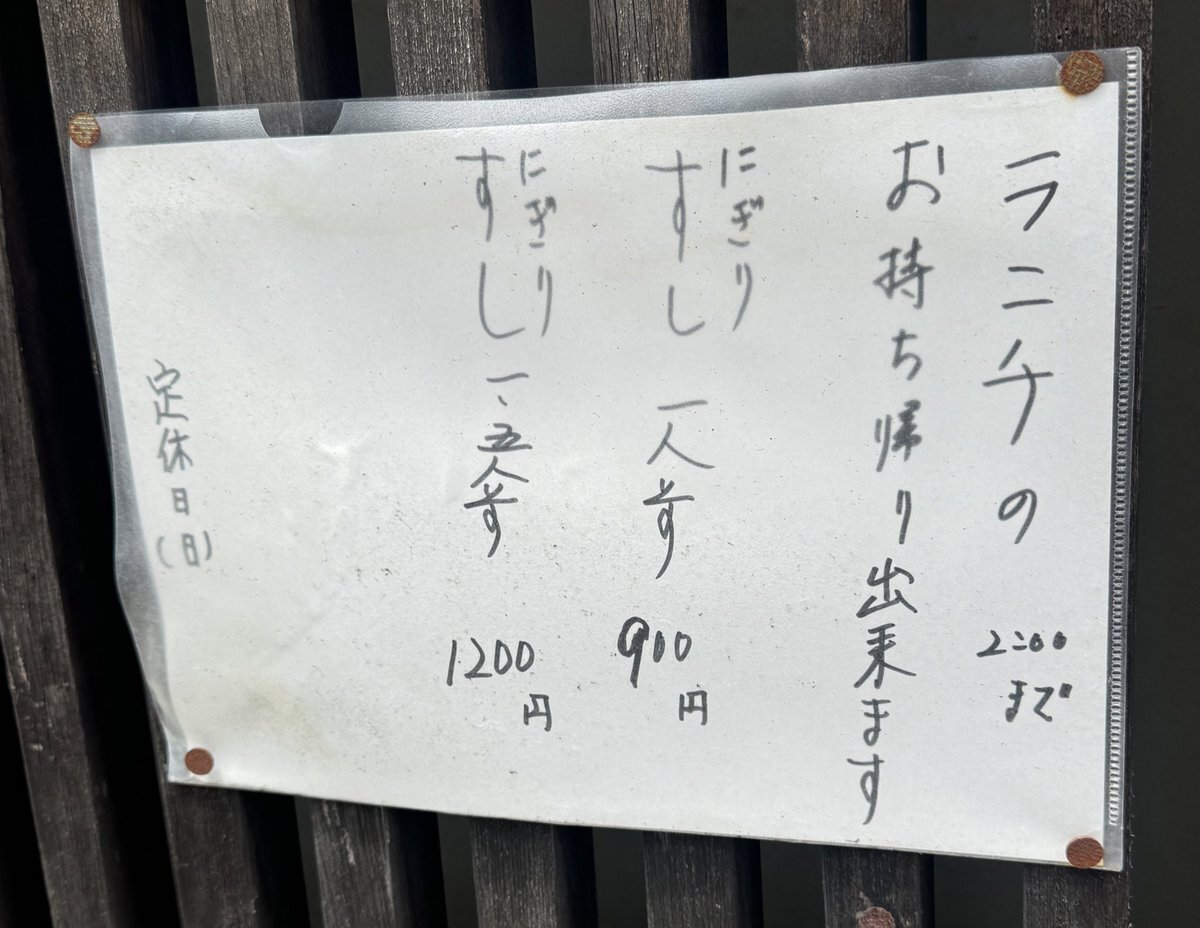 ランチの 2:00まで
お持ち帰り出来ます
にぎりすし 一人前 900円
にぎりすし 一、五人前 1200円
定休日(日)